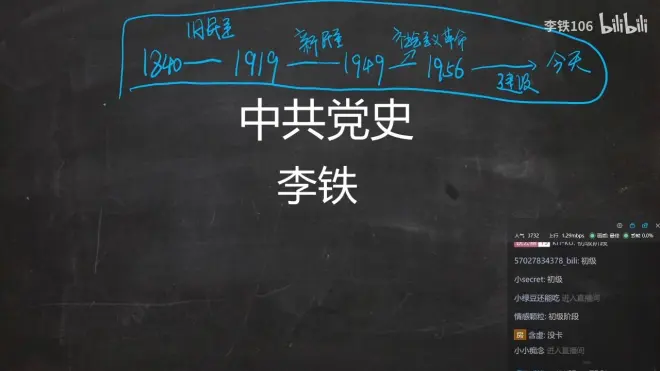 李铁106 bilibili
旧民主 新民主 社会主义革命
1840 — 1919 — 1949 — 1956 → 今天
建设
中共党史
李铁
人气: 3732 上行: 1.29mbps 丢帧: 0.0%
初级阶段
57027834378_bili: 初级
小secret: 初级
小绿豆还能吃 进入直播间
情感颗粒: 初级阶段
含虚: 没卡
小小概念 进入直播间